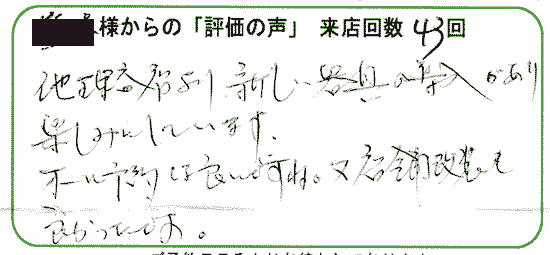 様からの「評価の声」 来店回数 43回
他理容店より新しい器具の導入があり
楽しみにしています。
オール予約は良いですね。又店舗改装も
良かったです。